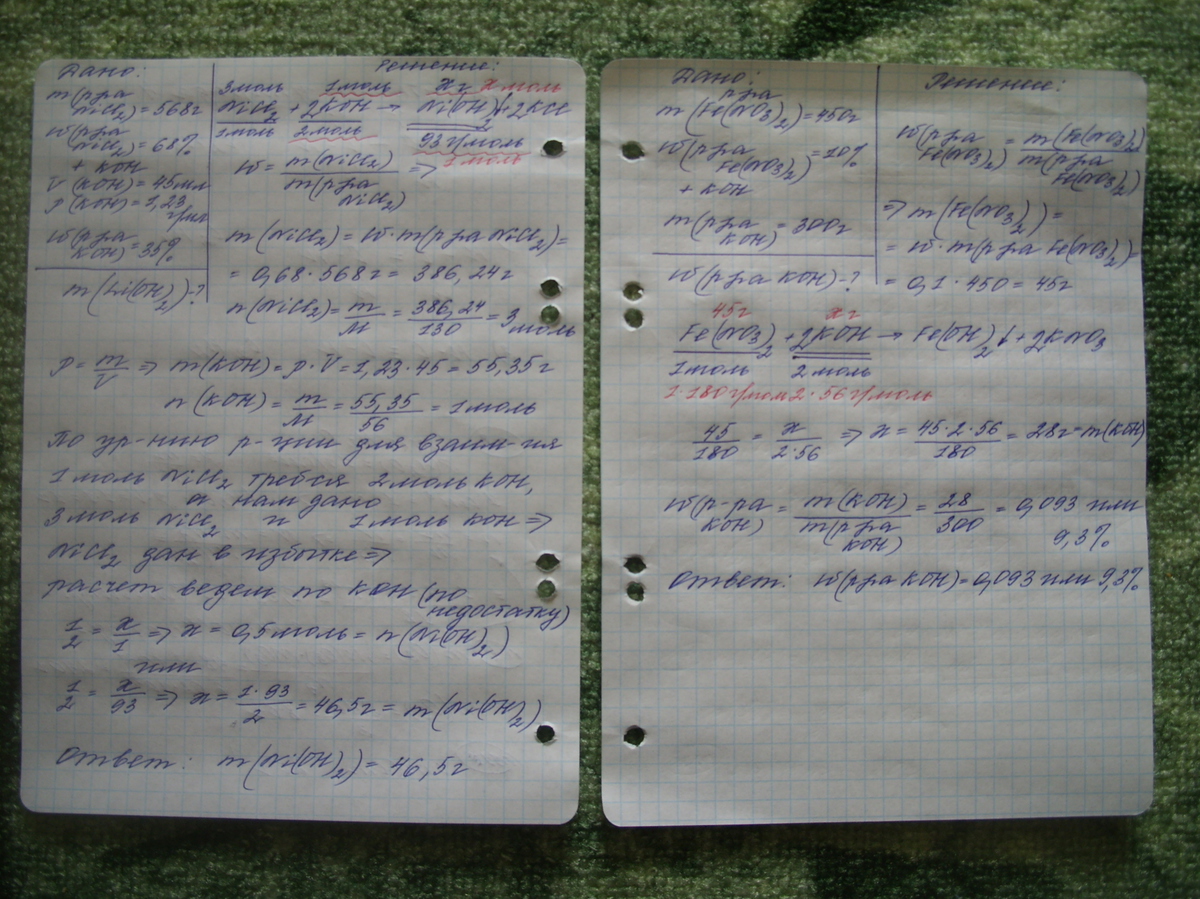 Дано:
m(р-ра
NiCl₂) = 568г
ω(р-ра
NiCl₂) = 68%
+ KOH
V(KOH) = 45мл
ρ(KOH) = 1,23
г/мл
ω(р-ра
KOH) = 35%
m(Ni(OH)₂)-?
Решение:
3моль 1моль x г x моль
NiCl₂ + 2KOH → Ni(OH)₂↓ + 2KCl
1моль 2моль 93 г/моль
1моль
ω = m(NiCl₂) / m(р-ра NiCl₂) ⇒
m(NiCl₂) = ω · m(р-ра NiCl₂) =
= 0,68 · 568г = 386,24г
n(NiCl₂) = m/M = 386,24/130 = 3 моль
ρ = m/V ⇒ m(KOH) = ρ · V = 1,23 · 45 = 55,35г
n(KOH) = m/M = 55,35/56 = 1моль
По ур-нию р-ции для взаим-ия
1моль NiCl₂ треб-ся 2моль KOH,
а нам дано
3моль NiCl₂ и 1моль KOH ⇒
NiCl₂ дан в избытке ⇒
расчет ведем по KOH (по
недостатку)
1/2 = x/1 ⇒ x = 0,5моль = n(Ni(OH)₂)
или
1/2 = x/93 ⇒ x = 1·93/2 = 46,5г = m(Ni(OH)₂)
Ответ: m(Ni(OH)₂) = 46,5г
Дано:
р-ра
m(Fe(NO₃)₂) = 450г
ω(р-ра
Fe(NO₃)₂) = 10%
+ KOH
m(р-ра
KOH) = 300г
ω(р-ра KOH)-?
Решение:
ω(р-ра Fe(NO₃)₂) = m(Fe(NO₃)₂) / m(р-ра Fe(NO₃)₂)
⇒ m(Fe(NO₃)₂) =
= ω · m(р-ра Fe(NO₃)₂) =
= 0,1 · 450 = 45г
45г x г
Fe(NO₃)₂ + 2KOH → Fe(OH)₂↓ + 2KNO₃
1моль 2моль
1·180г/моль 2·56г/моль
45/180 = x/2·56 ⇒ x = 45·2·56/180 = 28г = m(KOH)
ω(р-ра KOH) = m(KOH) / m(р-ра KOH) = 28/300 = 0,093 или
9,3%
Ответ: ω(р-ра KOH) = 0,093 или 9,3%